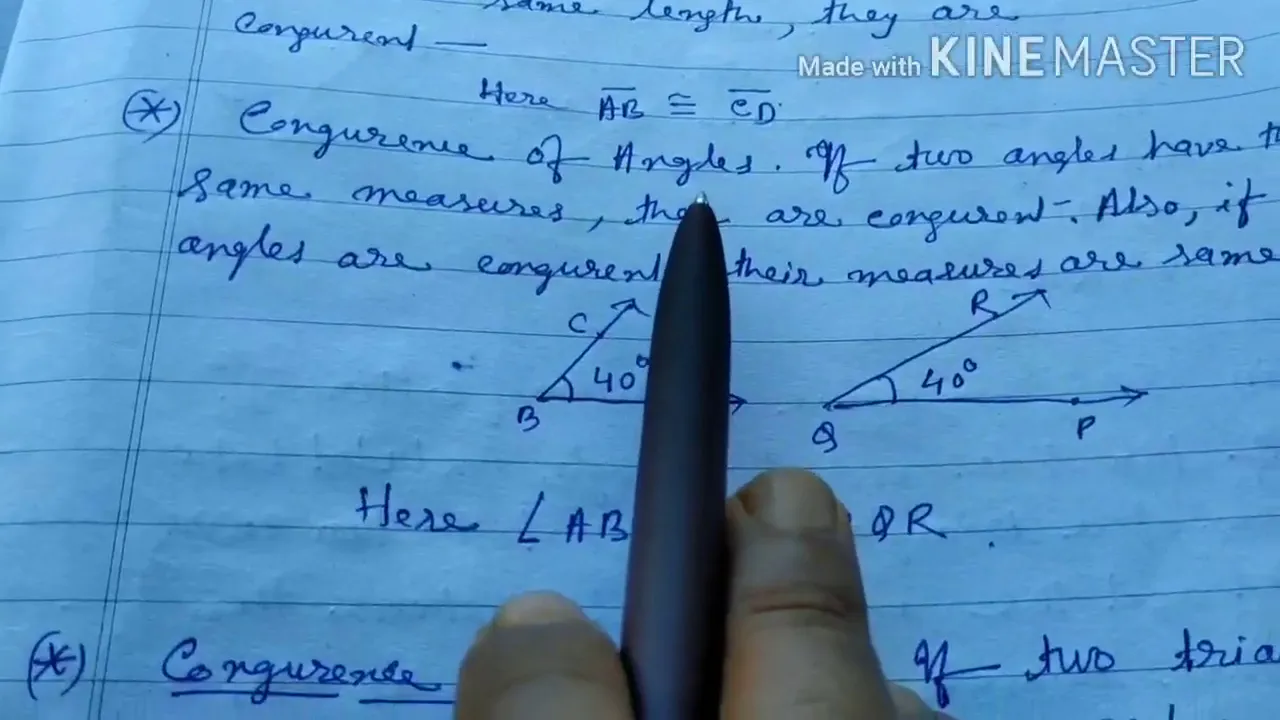 same length, they are
Congurent —
Made with KINEMASTER
Here AB ≅ CD
(*) Congurence of Angles. If two angles have
same measures, are congurent. Also, if
angles are congurent their measures are same
C R
40° 40°
B Q P
Here ∠AB QR
(*) Congurence If two